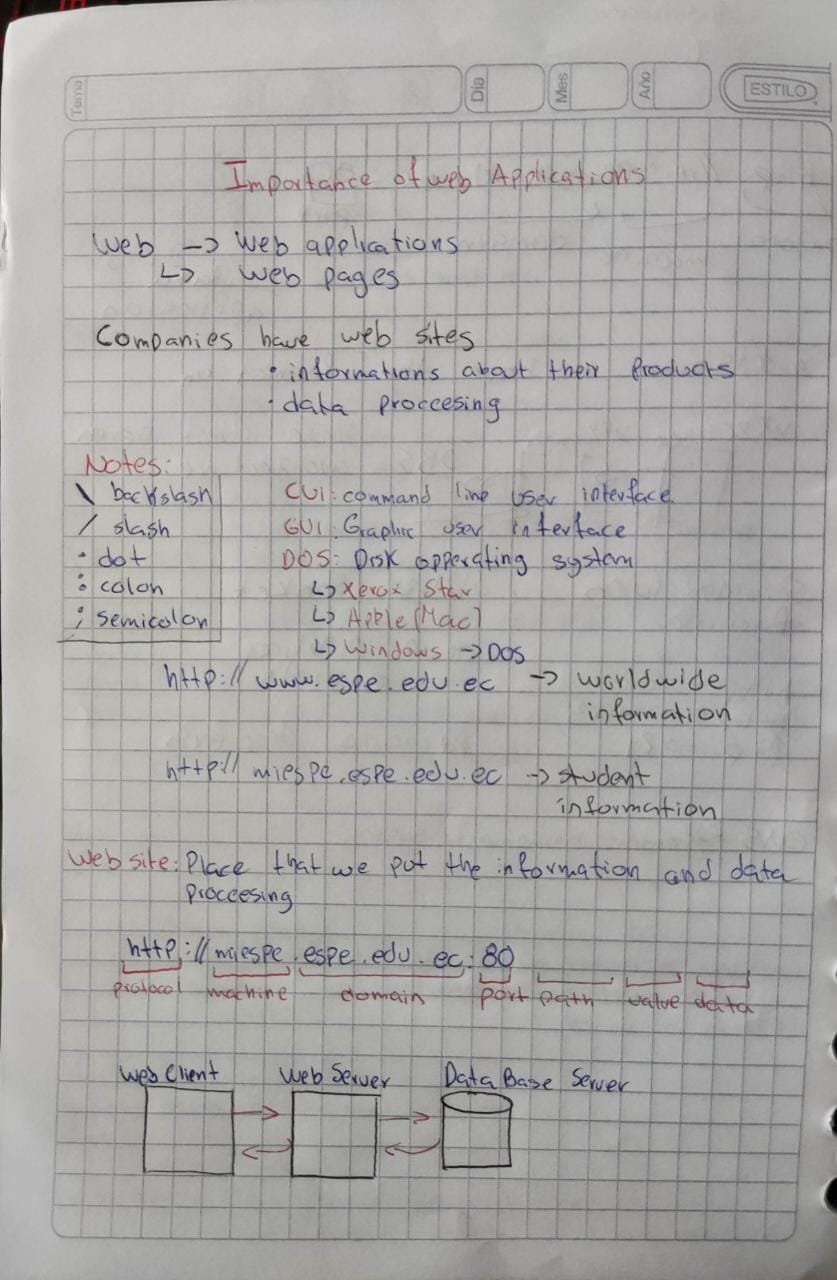 Tema Día Mes Año ESTILO
Importance of web Applications
Web -> Web applications
↳ Web pages
Companies have web sites
• informations about their Products
• data proccesing
Notes:
\ backslash
/ slash
. dot
: colon
; semicolon
CUI: command line user interface
GUI: Graphic user interface
DOS: Disk opperating system
↳ Xerox Star
↳ Apple (Mac)
↳ Windows -> DOS
http:// www.espe.edu.ec -> worldwide
information
http:// miespe.espe.edu.ec -> student
information
Web site: Place that we put the information and data
Proccesing
http:// miespe.espe.edu.ec:80
protocol machine domain port path value data
Web Client Web Server Data Base Server